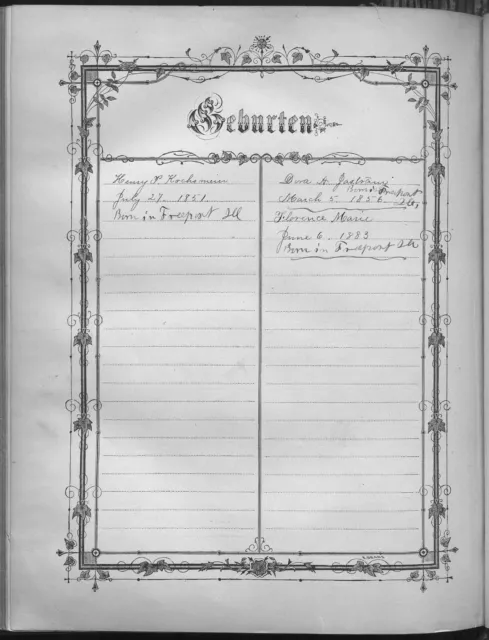 Geburten
Henry
July 27, 1851
Born in Freeport Ill
A.
Born in Freeport
March 5. 1856. Ill,
Florence Marie
June 6. 1883
Born in Freeport Ill